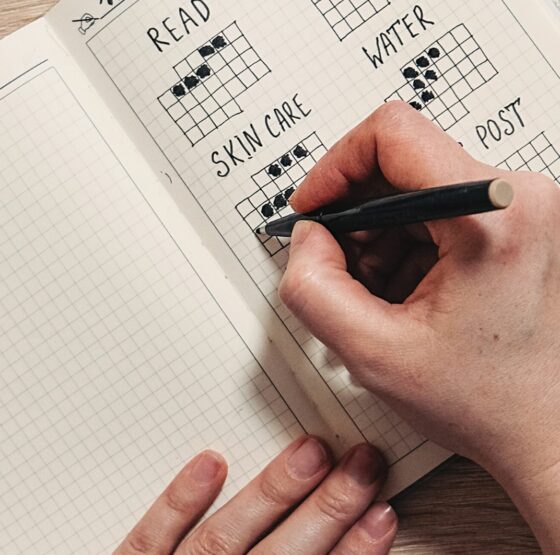 READ
WATER
SKIN CARE
POST